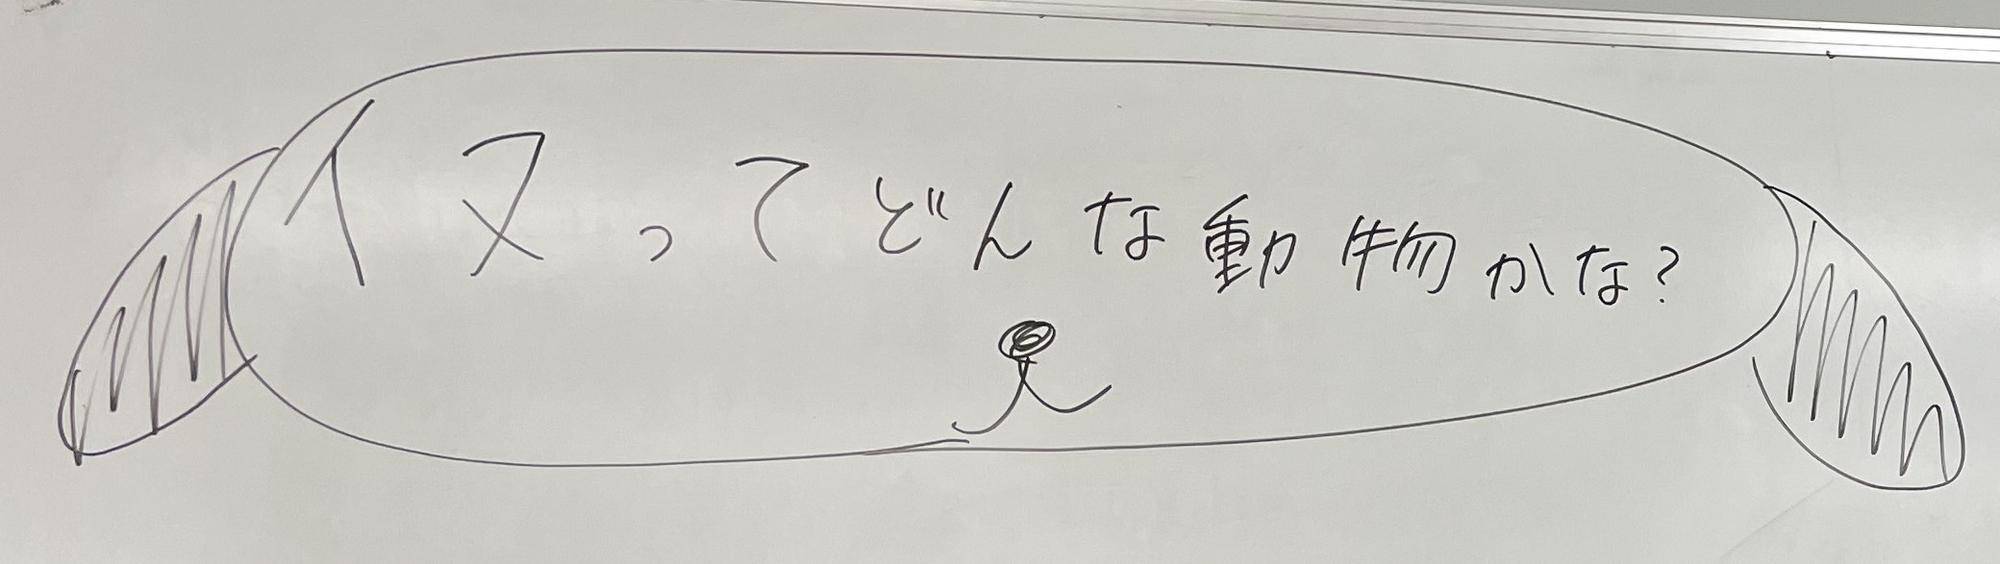 イヌってどんな動物かな?